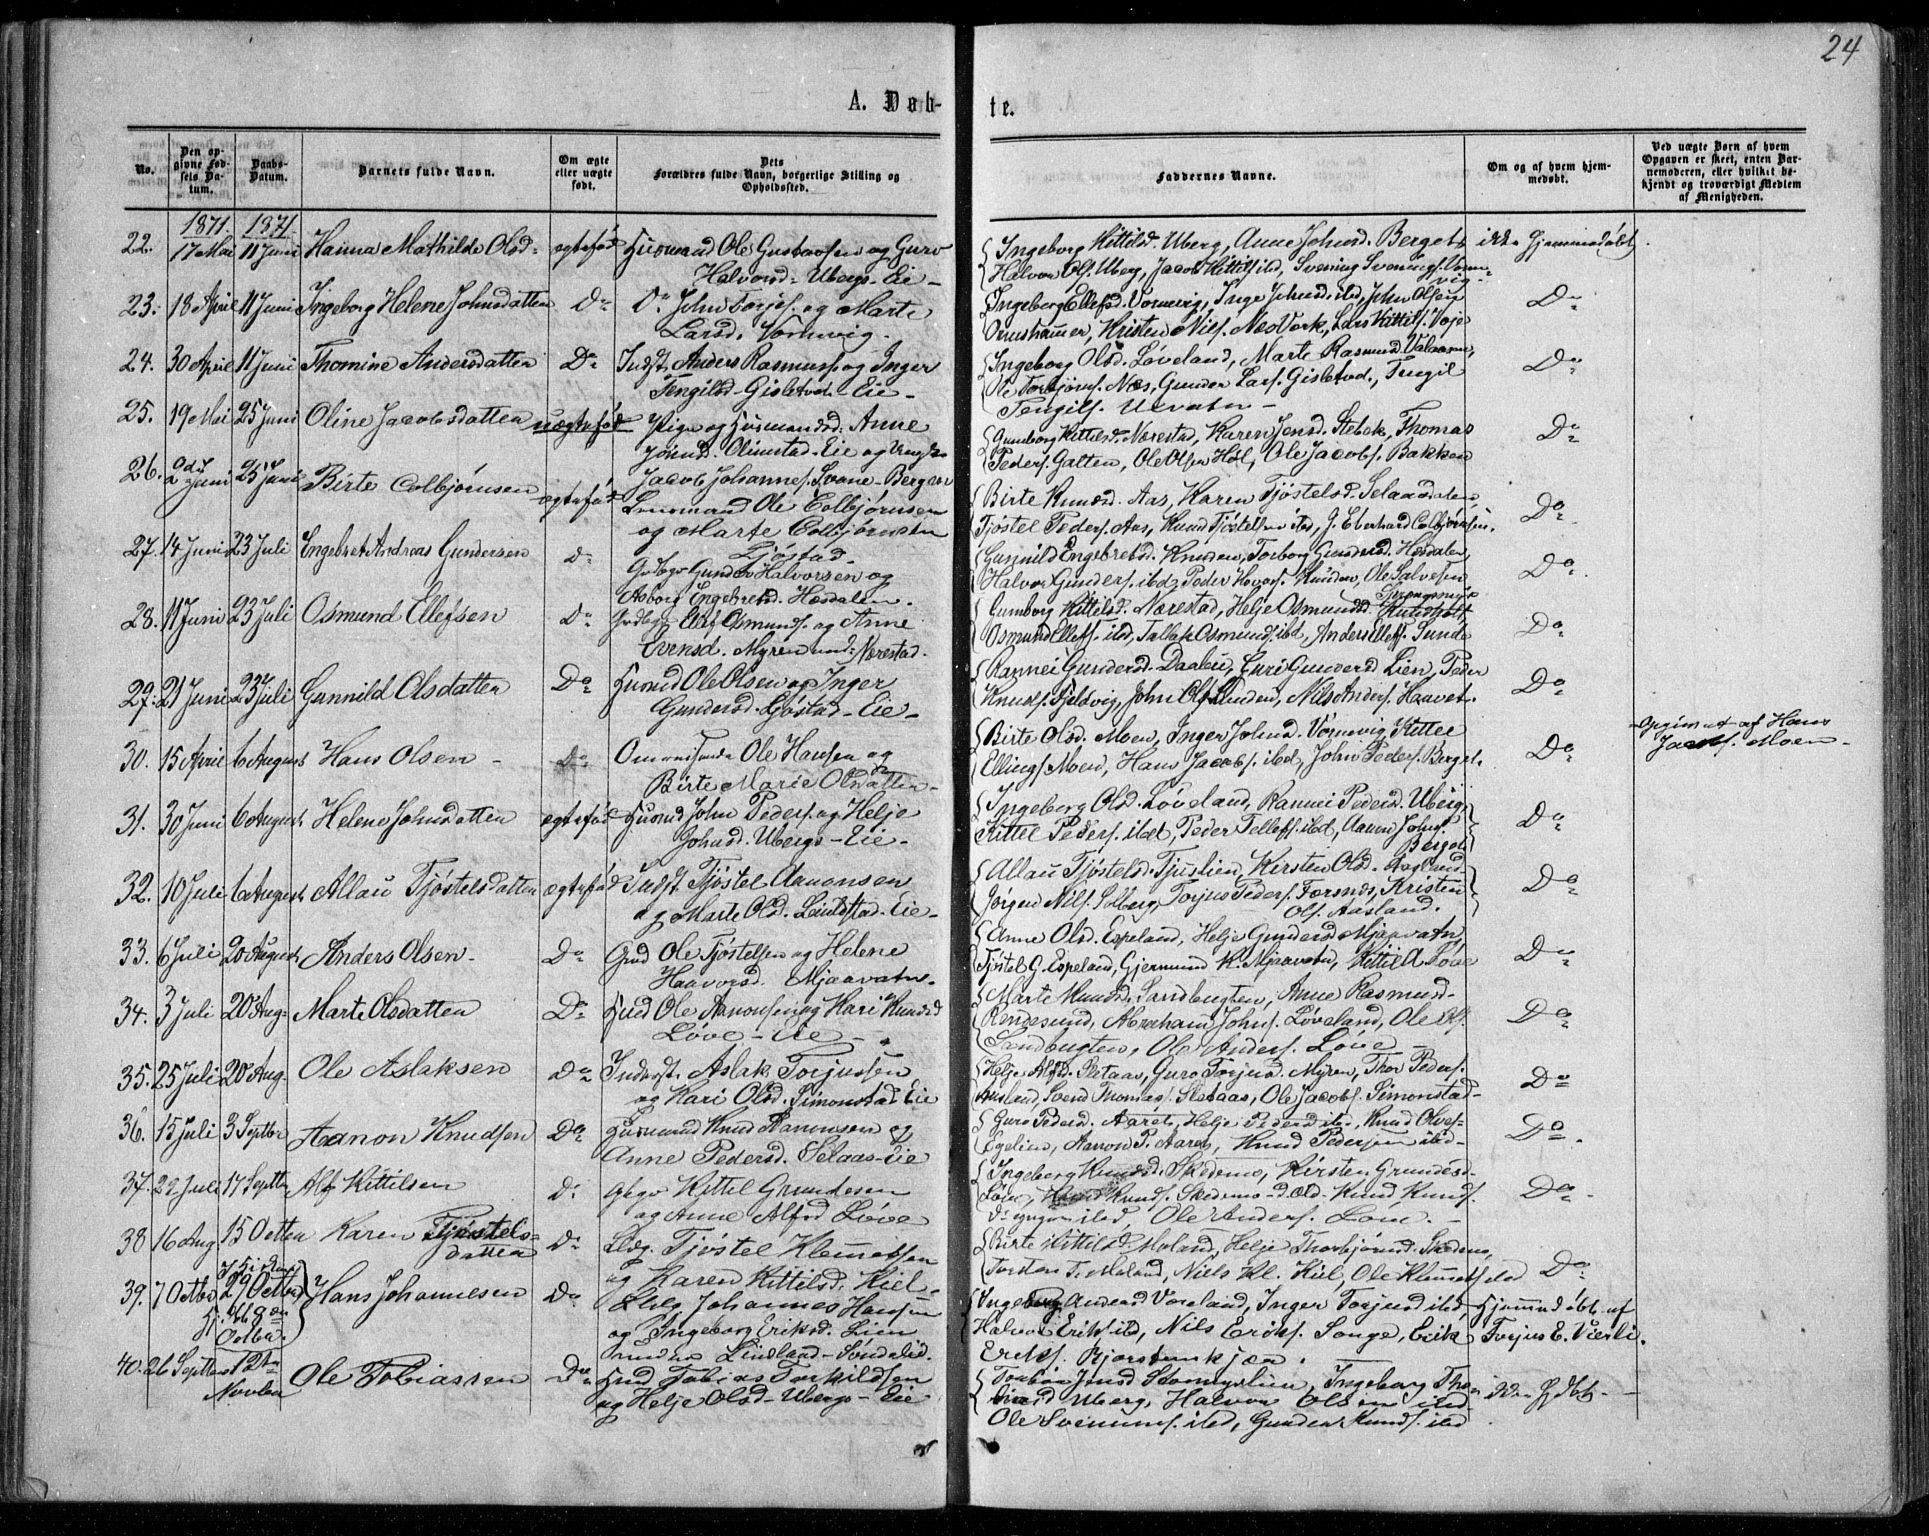 24
A. Døb-
te.
No.
Den op-
givne Fød-
sels Da-
tum.
Daabs-
Datum.
Barnets fulde Navn.
Om ægte
eller uægte
født.
Dets
Forældres fulde Navn, borgerlige Stilling og
Opholdssted.
Faddernes Navne.
Om og af hvem hjem-
medøbt.
Ved uægte Børn af hvem
Opgaven er skeet, enten Bar-
nemoderen, eller hvilket be-
kjendt og troværdigt Medlem
af Menigheden.
1871. 1871.
22. 17 Mai 11 Juni Hanna Mathilde Olsd. ægtefød Husmand Ole Gustavsen og Guro
Halvorsd. Ubergs-Eie-
Ingeborg Kittilsd. Uberg, Anne Johnsd. Berget, ikke hjemmedøbt
Halvor Ols. Uberg, Jacob Kittils. ibd, Svening Svenings. Vormvig-
23. 18 April 11 Juni Ingeborg Helene Johnsdatter Do Do John Torjs. og Marte
Larsd. Vormvig.
Ingeborg Ellefsd. Vormevig, Inge Johnsd. ibd, John Olsen
Ornshammer, Kristen Nils. Næs Verk, Lars Kittils. Veje Do
24. 30 April 11 Juni Thomine Andersdatter Do Indst. Anders Rasmuss. og Inger
Tengilsd. Gislestad-Eie-
Ingeborg Olsd. Løveland, Marte Rasmusd. Valaasen,
Ole Torbjørns. Næs, Gunder Lars. Gislestad, Tengil
Tengils. Urvatn- Do
25. 19 Mai 25 Juni Oline Jacobsdatter uægtefød Pige og Husmandsd. Anne
Jensd. Olimstad-Eie og Ungk.
Jacob Johannes. Svane-Bergen
Gunborg Kittilsd. Nærestad, Karen Jensd. Stebek, Thomas
Peders. Galten, Ole Olsen Høl, Ole Jacobs. Bakken Do
26. 2den Juni 25 Juni Birte Colbjørnsen ægtefød Lensmand Ole Colbjørnsen
og Marte Colbjørnsen
Tjøstad-
Birte Knudsd. Aas, Karen Tjøstelsd. Selaasdalen,
Tjøstel Peders. Aas, Knud Tjøstelsen ibd, J. Eberhard Colbjørnsen. Do
27. 14 Juni 23 Juli Engebret Andreas Gundersen Do Grdbgr Gunder Halvorsen og
Aaborg Engebretsd. Hæsdalen.
Gunnild Engebretsd. Knuden, Torborg Gundersd. Hæsdalen,
Halvor Gunders. ibd, Peder Havors. Knuden, Ole Salvesen Do
28. 11 Juni 23 Juli Osmund Ellefsen Do Grdbgr Ellef Osmunds. og Anne
Evensd. Myren und. Nærestad.
Gumborg Kittilsd. Nærestad, Helje Osmundsd.
Osmund Ellefs. ibd, Tallak Osmunds. ibd, Anders Ellefs. Sunde Do
29. 21 Juni 23 Juli Gunnild Olsdatter Do Husmd Ole Olsen og Inger
Gundersd. Tjøstad-Eie-
Rannei Gundersd. Daaleu, Guri Gundersd. Lien, Peder
Knuds. Fjeldvig, John Ols. Knuden, Nils Anders. Haavet. Do
30. 15 April 6 August Hans Olsen- Do Omreisende Ole Hansen og
Birte Marie Olsdatter-
Birte Olsd. Moen, Inger Johnsd. Vormevig, Kittel
Ellings. Moen, Hans Jacobs. ibd, John Peders. Berget. Do
Opgivet af Hans
Jacobs. Moen-
31. 30 Juni 6 August Helene Johnsdatter ægtefød Husmd John Peders. og Helje
Johnsd. Ubergs-Eie-
Ingeborg Olsd. Løveland, Rannei Pedersd. Uberg,
Kittel Peders. ibdt, Peder Tellefs. ibd, Aanon Johns.
Berget Do
32. 10 Juli 6 August Allau Tjøstelsdatter ægtefød Indst. Tjøstel Aanonsen
og Marte Olsd. Lindstad-Eie-
Allau Tjøstelsd. Tjuslien, Kirsten Olsd. Aasland
Jørgen Nils. Solberg, Torjus Peders. Forsnes, Kristen
Ols. Aasland. Do
33. 6 Juli 20 August Anders Olsen- Do Gmd Ole Tjøstelsen og Helene
Haavorsd. Mjaavatn-
Anne Olsd. Espeland, Helje Gundersd. Mjaavatn
Tjøstel G. Espeland, Gjermund K. Mjaavatn, Kittil A. Løve Do
34. 3 Juli 20 Aug- Marte Olsdatter Do Husmd Ole Aanonsen og Kari Knudsd
Løve-Eie-
Marte Knudsd. Sandbugten, Anne Rasmusd.
Rendesund, Abraham Johns. Løveland, Ole Ols.
Sandbugten, Ole Anders. Løve- Do
35. 25 Juli 20 Aug- Ole Aslaksen Do Inderst. Aslak Torjussen
og Kari Olsd. Simonstad-Eie
Helje Alfsd. Sletaas, Guro Torjusd. Myren, Thor Peders.
Aasland, Svend Thomas. Sletaas, Ole Jacobs. Simonstad- Do
36. 15 Juli 3 Septbr Aanon Knudsen Do Husmand Knud Aanonsen og
Anne Pedersd. Selaas-Eie
Guro Pedersd. Aaret, Helje Pedersd ibd, Knud Olves-
Egelien, Aanon P. Aaret, Knud Pedersen ibd- Do.
37. 22 Juli 17 Septbr Alf Kittilsen Do Gbgr Kittel Grundesen
og Anne Alfsd Løve
Ingeborg Knudsd. Skedemo, Kirsten Grundesd-
Løve, Knud Knuds. Skedsmo-d.æld-Knud Knuds.
D: yngre ibd, Ole Anders. Løve.- Do
38 16 Aug 15 Octbr Karen Tjøstels-
datter Do Lldg. Tjøstel Klemetsen
og Karen Kittilsd. Kiel-
Birte Kittilsd. Moland, Helje Thorbjørnsd. Skedmo,
Torsten T. Moland, Niels Kl. Kiel, Ole Klemets. ibd Do
39. 7 Octbr 29 Octbr Hans Johannesen Do Lldg Johannes Hansen
og Ingeborg Eriksd. Lien
under Lindland-Søndeled.
Ingeborg Andersd Voreland, Inger Torjusd ibd, Hjemmedøbt af
Halvor Eriks. ibd, Nils Eriks. Songe, Erik Torjus E. Vierli.
Eriks. Bjorstemkjær.
40. 26 Septbr 12te
Novbr Ole Tobiassen Do Husmd Tobias Torkildsen
og Helje Olsd-Ubergs-Eie
Torbor Jensd Stomyrlien, Ingeborg Tho-
Uberg, Halvor Olsen ibd
Ole Svennings. ibd, Gunder Knuds. ibd